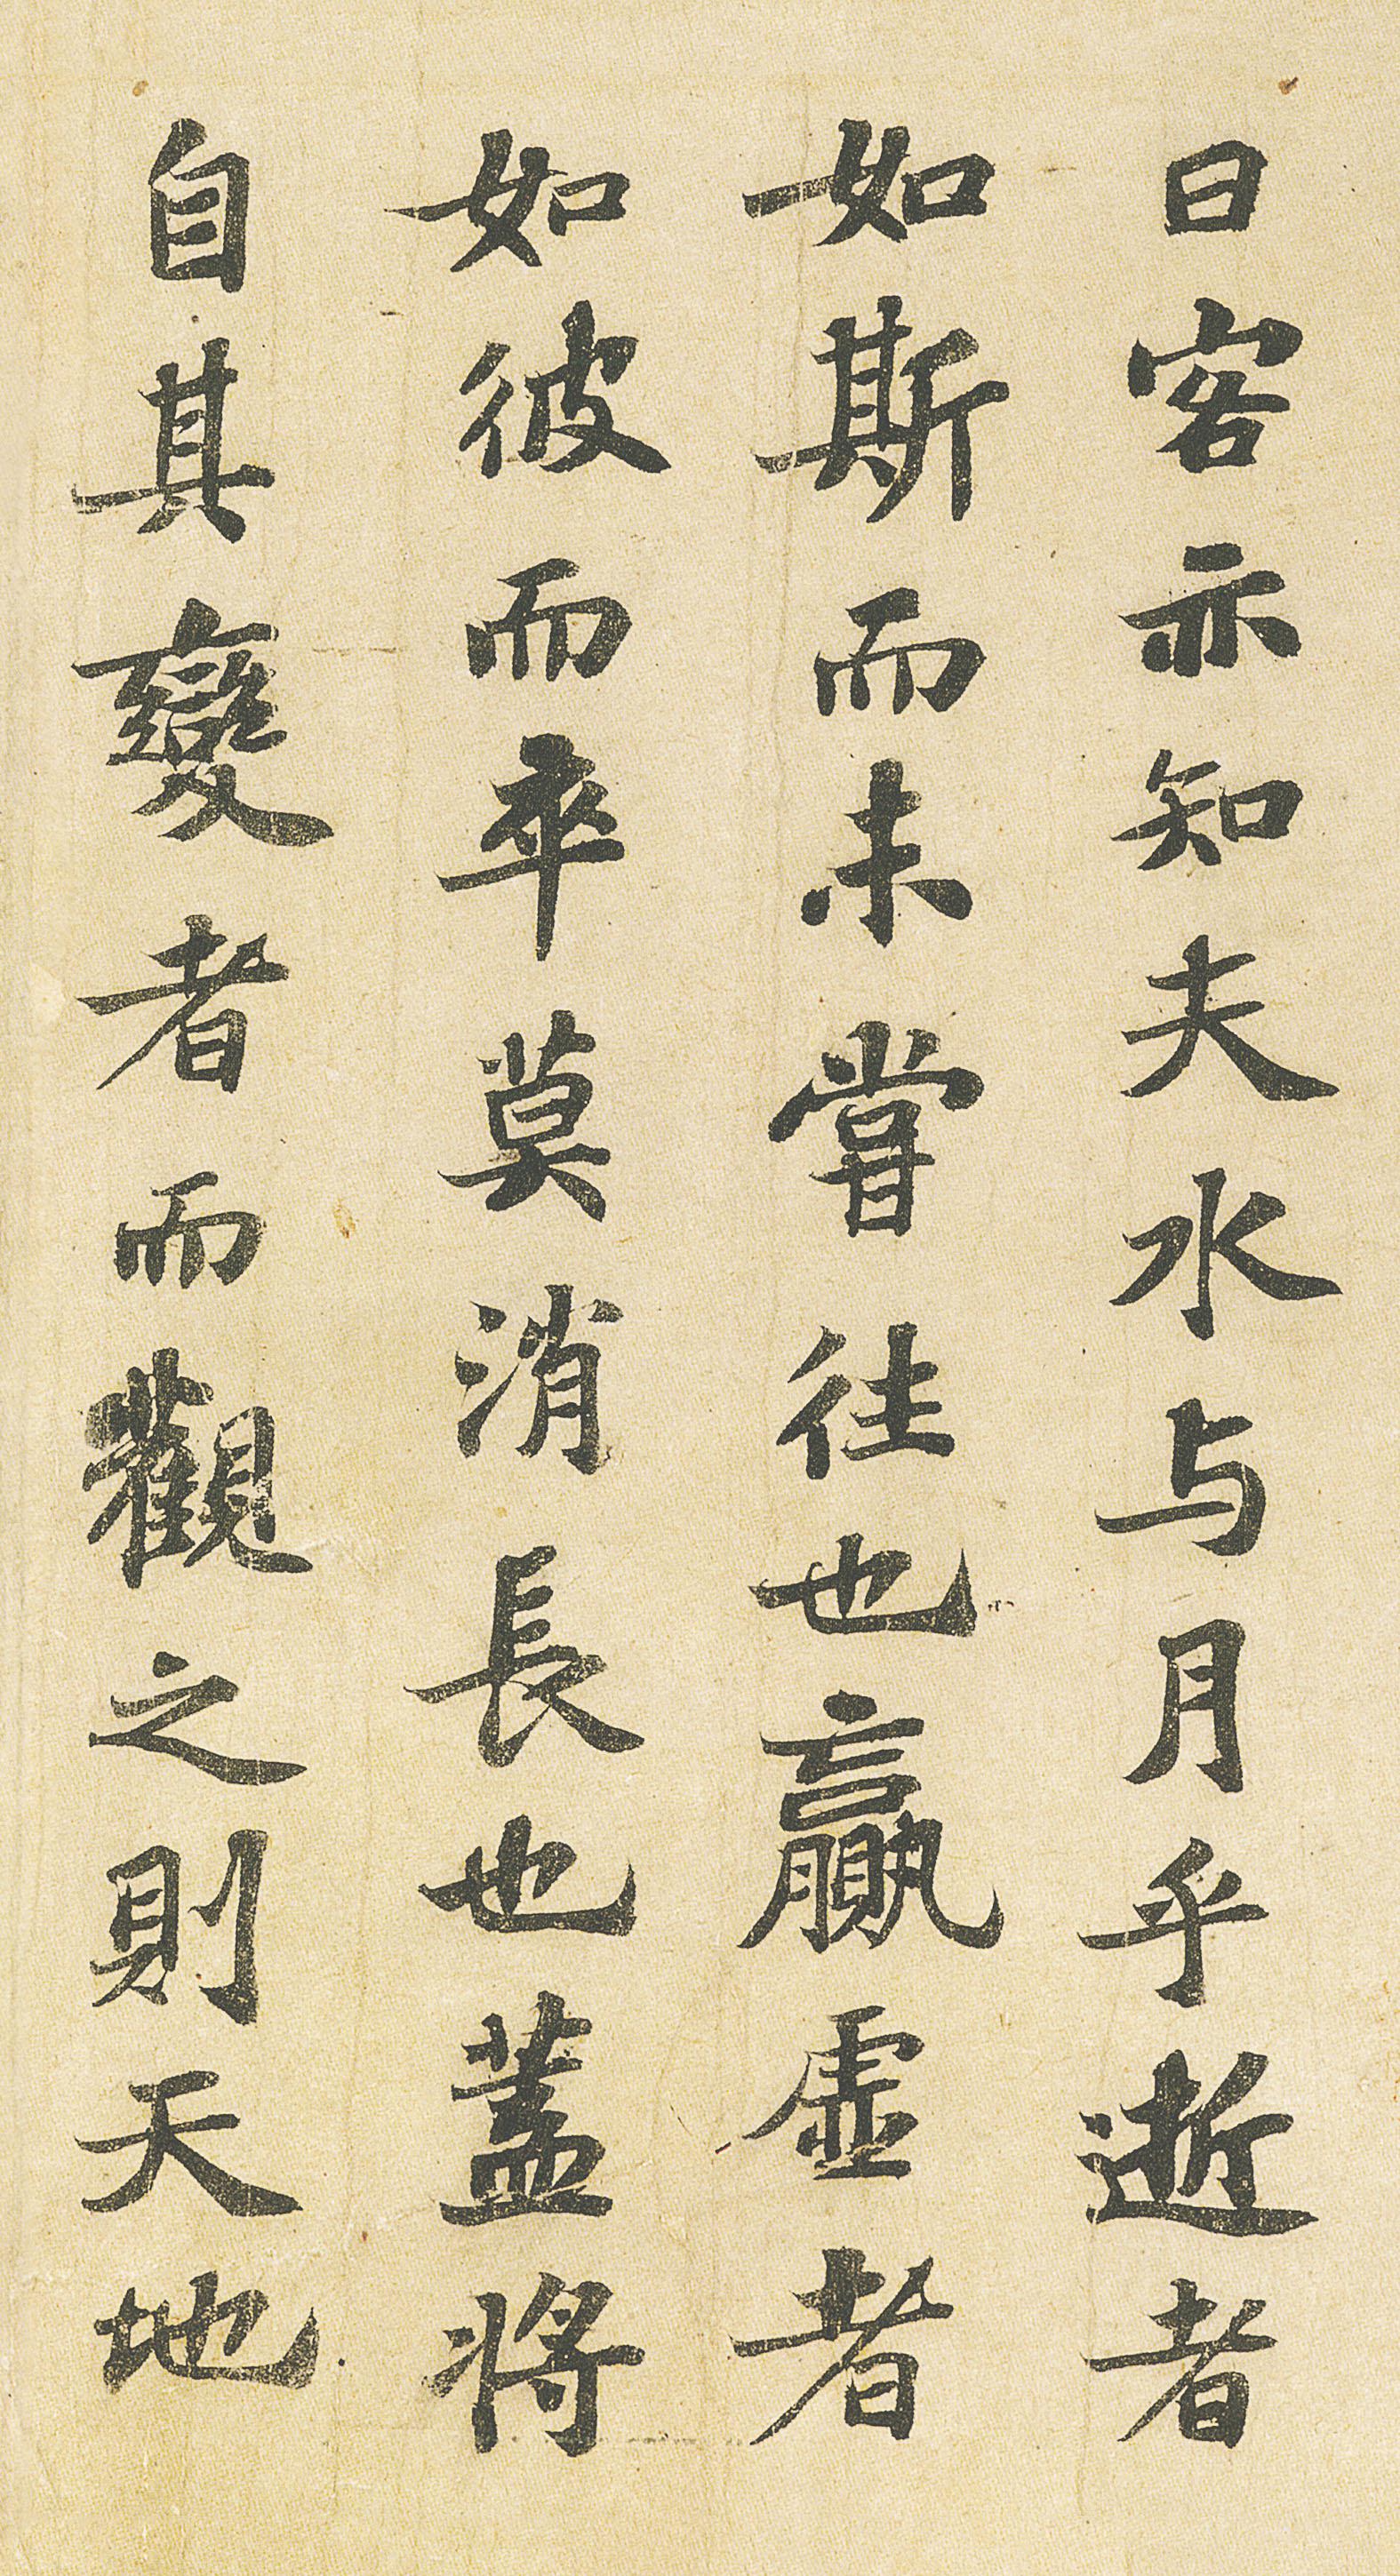 曰客亦知夫水与月乎逝者
如斯而未甞往也贏虛者
如彼而卒莫消長也蓋將
自其變者而觀之則天地